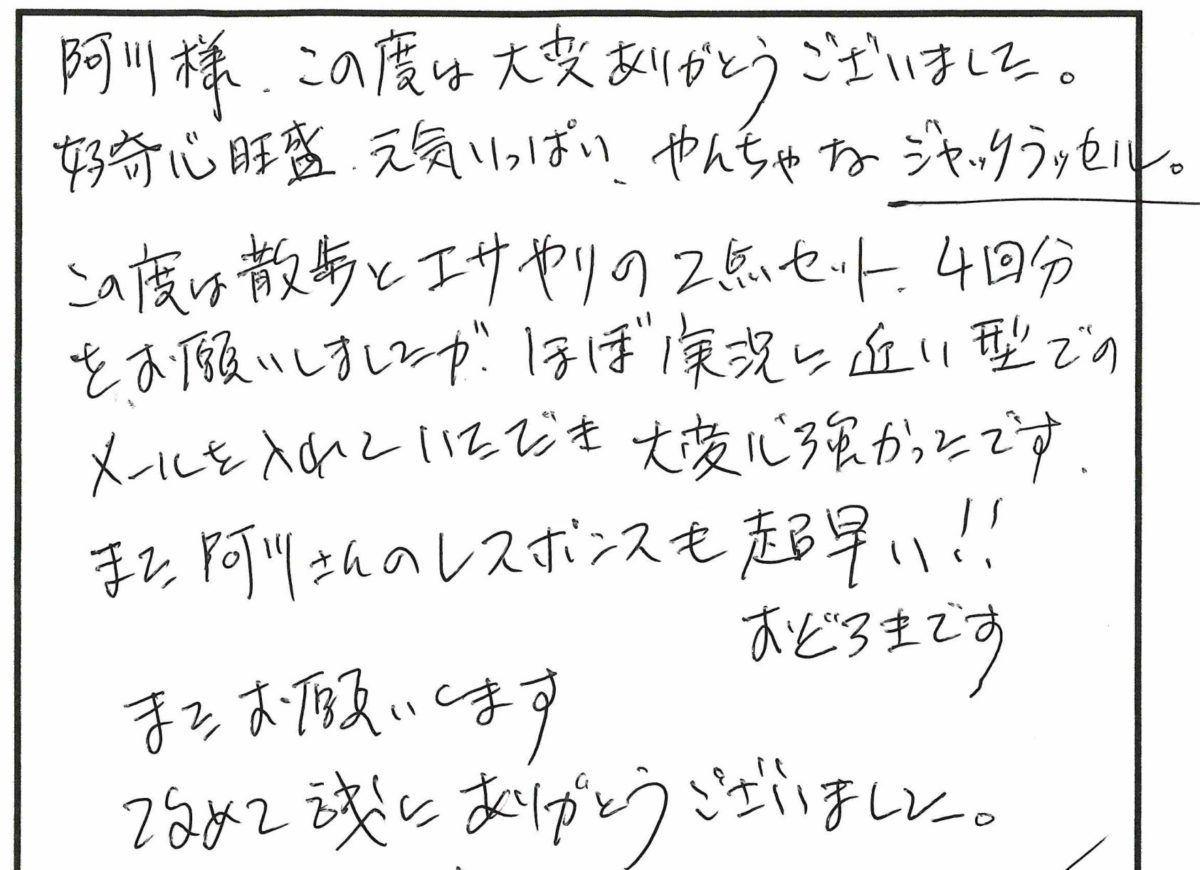 阿川様、この度は大変ありがとうございました。
好奇心旺盛、元気いっぱい、やんちゃなジャックラッセル。
この度は散歩とエサやりの2点セット、4回分
をお願いしましたが、ほぼ実況に近い型での
メールを入れていただき大変心強かったです、
また阿川さんのレスポンスも超早い!!
おどろきです
またお願いします
改めて誠にありがとうございました。